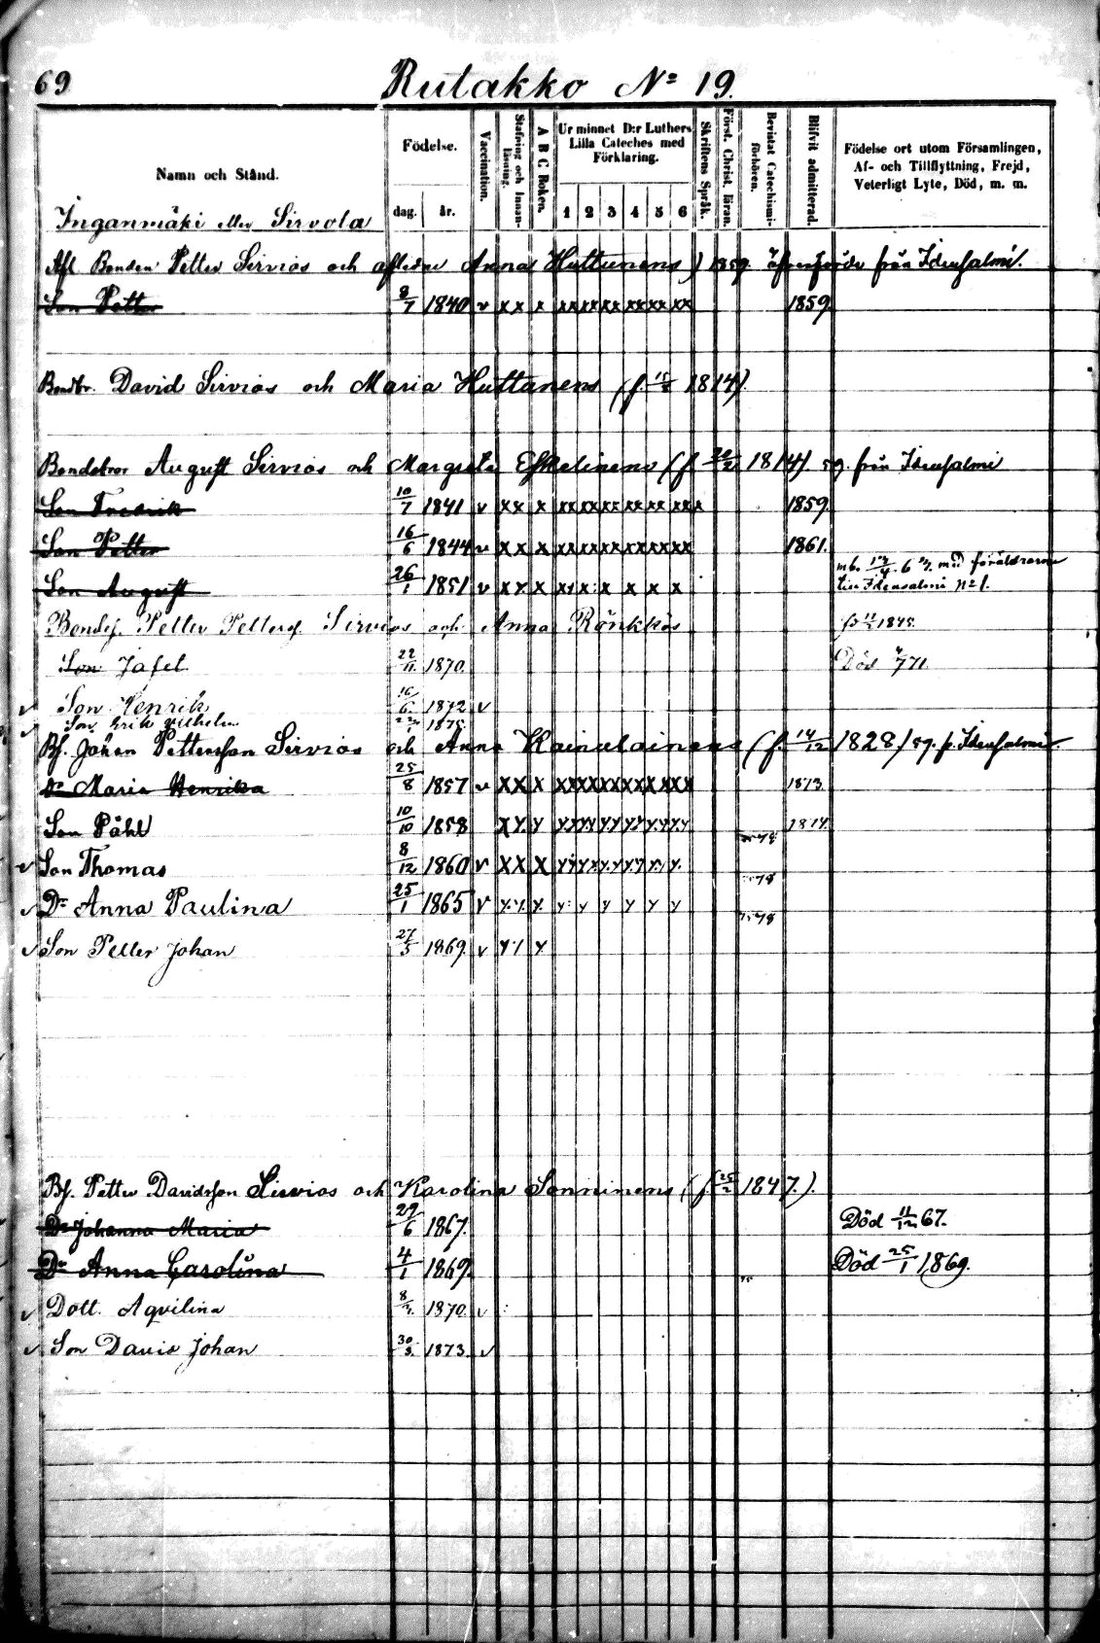 69 Rutakko No 19.
Namn och Stånd.
Födelse.
dag. år.
Vaccination.
Stafning och Innanläsning.
A B C Boken.
Ur minnet D:r Luthers Lilla Cateches med Förklaring.
1 2 3 4 5 6
Skriftens Språk.
Först. Christ. läran.
Bevistat Catechismiförhören.
Blifvit admitterad.
Födelse ort utom Församlingen, Af- och Tillflyttning, Frejd, Veterligt Lyte, Död, m. m.
Inganmäki eller Sirvola
Afl Bonden Petter Sirviös och aflidne Annas Huttunens) 1859. från Idensalmi.
Son Petter 8/7 1840 v xx x xx xx xx xx xx xx 1859.
Bondbr. David Sirviös och Maria Huttunens (f. 1814).
Bondebror August Sirviös och Margreta Eskelinens (f. 1814) 59. från Idensalmi
Son Fredrik 10/7 1841 v xx x xx xx xx xx xx xx x 1859.
Son Petter 16/6 1844 v xx x xx xx xx xx xx xx 1861.
Son August 26/1 1851 v xx x xx x x x x x med föräldrarne till Idensalmi No 1.
Bondes. Petter Petterss. Sirviös och Anna Rönkkös 1848.
Son Jafet 22/11 1870. Död
v Son Henrik 16/6 1872 v
v Son Erik Wilhelm 1875.
Bs. Johan Pettersson Sirviös och Anna Hainulainens (f. 14/12 1828.) 59. f. Idensalmi.
Dr Maria Henrika 25/8 1857 v xx x xx xx xx xx xx xx 1873
Son Påhl 10/10 1858 xx x xx xx xx xx xx xx 1874
v Son Thomas 8/12 1860 v xx x xx xx xx xx x x
v Dr Anna Paulina 25/1 1865 v xx x x x x x x x
v Son Petter Johan 27/5 1869. v xx x
Bs. Petter Davidsson Sirviös och Karolina Sonninens (f. 25/2 1847.).
Dr Johanna Maria 29/6 1867. Död 11/12 67.
Dr Anna Carolina 4/1 1869. Död 25/1 1869.
v Dott. Aqvilina 1870. v
v Son David Johan 30/3 1873. v